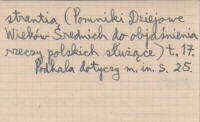 strantią (Pomniki Dziejowe
Wieków Średnich do objaśnienia
rzeczy polskich służące) t. 17.
Podhala dotyczy m. in. s. 25.